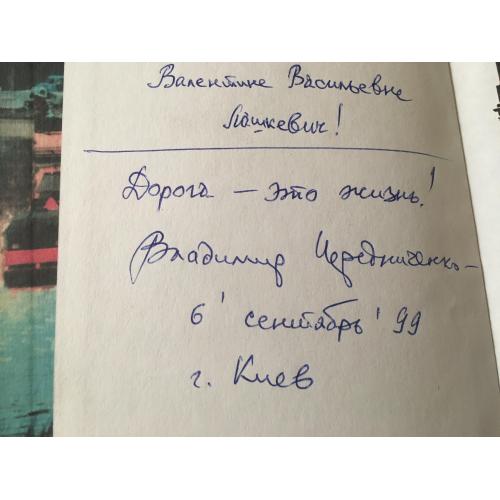 Валентине Васильевне
Лашкевич!
Дорога – это жизнь!
Владимир Чередниченко –
6' сентябрь '99
г. Киев